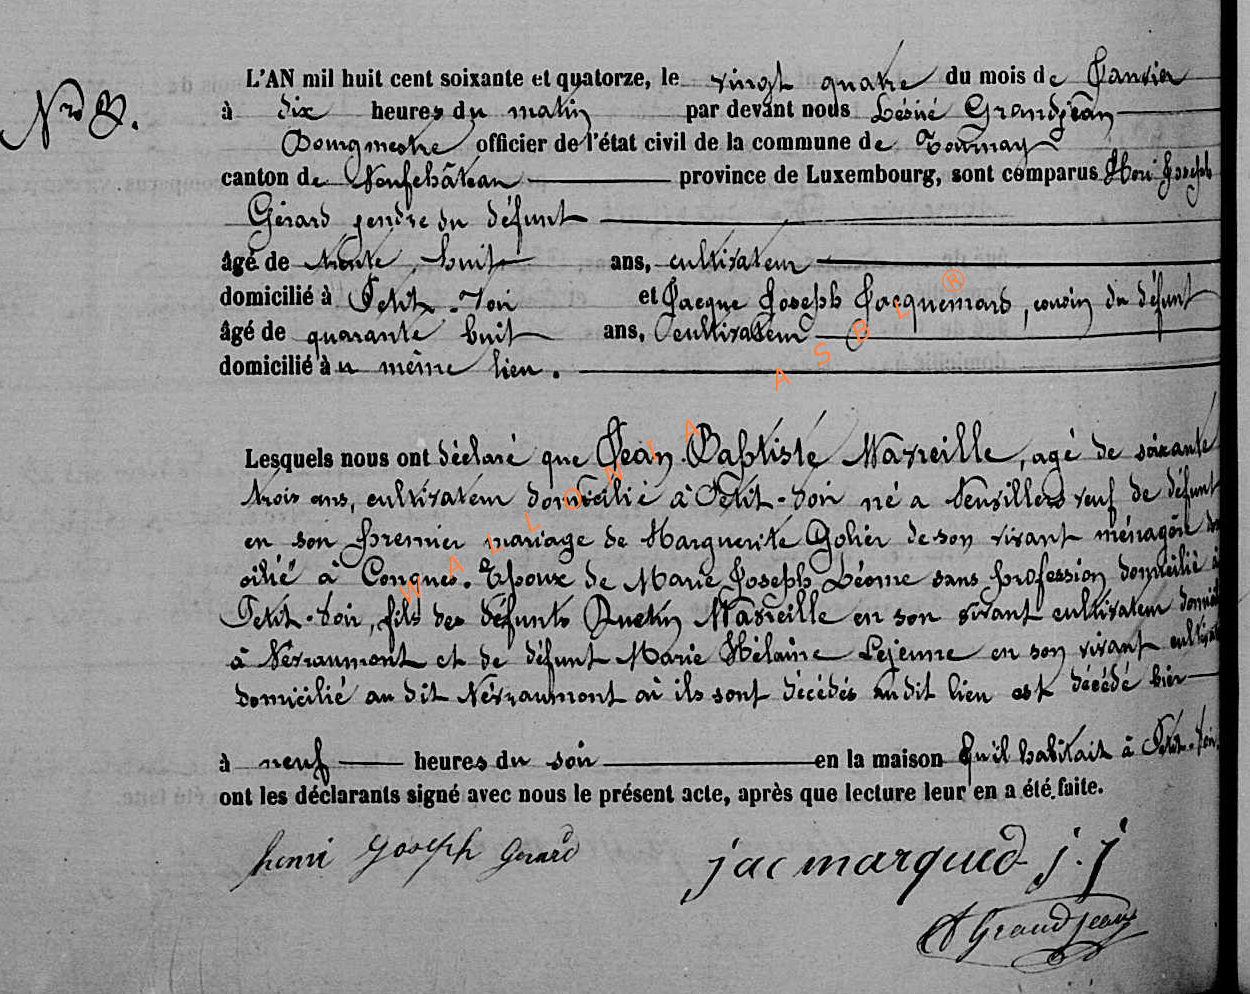 L'AN mil huit cent soixante et quatorze, le vingt quatre du mois de Janvier
Nro 8.
à dix heures du matin par devant nous Désiré Grandjean
Bourgmestre officier de l'état civil de la commune de Tournay
canton de Neufchâteau province de Luxembourg, sont comparus Henri Joseph
Gérard gendre du défunt
âgé de trente huit ans, cultivateur
domicilié à Petit-Voir et Jacque Joseph Jacquemard, cousin du défunt
âgé de quarante huit ans, cultivateur
domicilié au même lieu.
Lesquels nous ont déclaré que Jean Baptiste Marseille, agé de soixante
trois ans, cultivateur domicilié à Petit-Voir né a veuf de défunt
en son premier mariage de Marguerite Golier de son vivant ménagère dom
cilié à Epoux de Marie Joseph Léonne sans profession domicilié à
Petit-Voir, fils des défunts Quetin Marseille en son vivant cultivateur domicil
à Névraumont et de défunt Marie Hélaine Lejeune en son vivant cultivat
domicilié au dit Névraumont où ils sont décédés audit lieu est décédé hier
à neuf heures du soir en la maison qu'il habitait à Petit-Voir.
ont les déclarants signé avec nous le présent acte, après que lecture leur en a été faite.
henri Joseph Gerard
jacmarqued j.j
D Grandjean
WALLONIA ASBL ®